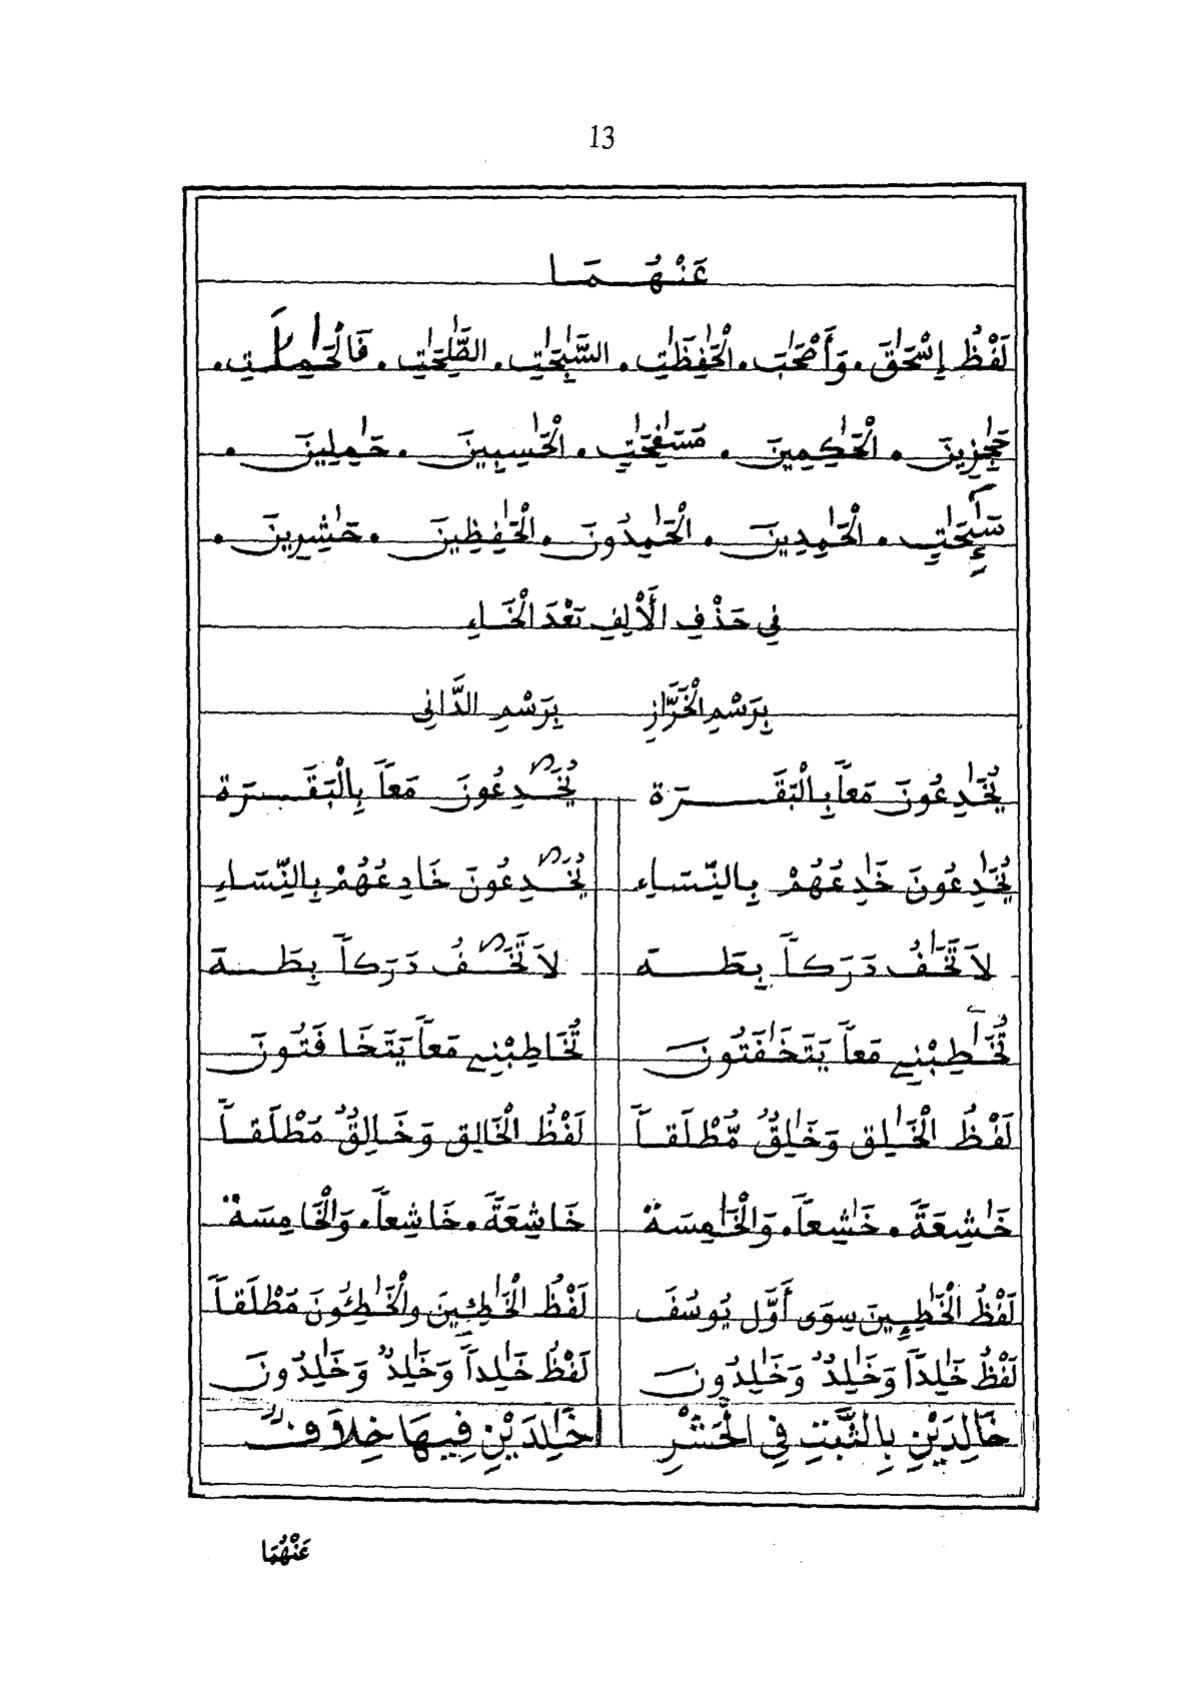 13
عَنْهُمَا
لَفْظُ إِسْحَٰقَ . وَأَصْحَٰبَ . الْحَٰفِظَٰتِ . السَّٰبِحَٰتِ . الصَّٰلِحَٰتِ . فَالْحَٰمِلَٰتِ .
حَٰجِزِينَ . الْحَٰكِمِينَ . مُسَٰفِحَٰتٍ . الْحَٰسِبِينَ . حَٰمِلِينَ .
سَٰٓئِحَٰتٍ . الْحَٰمِدِينَ . الْحَٰمِدُونَ . الْحَٰفِظِينَ . حَٰشِرِينَ .
فِي حَذْفِ الْأَلِفِ بَعْدَ الْخَاءِ
بِرَسْمِ الْخَرَّازِ بِرَسْمِ الدَّانِى
يُخَٰدِعُونَ مَعاً بِالْبَقَرَة يُخَٰدِعُونَ مَعاً بِالْبَقَرَة
يُخَٰدِعُونَ خَٰدِعُهُمْ بِالنِّسَاءِ يُخَٰدِعُونَ خَادِعُهُمْ بِالنِّسَاءِ
لاَ تَخَٰفُ دَرَكاً بِطَهَ لاَ تَخَٰفُ دَرَكاً بِطَهَ
تُخَٰطِبْنِے مَعاً يَتَخَٰفَتُونَ تُخَاطِبْنِے مَعاً يَتَخَافَتُونَ
لَفْظُ الْخَٰلِق وَخَٰلِقُ مُّطْلَقاً لَفْظُ الْخَالِق وَخَالِقُ مُطْلَقاً
خَٰشِعَةً . خَٰشِعاً . وَالْخَٰمِسَةُ خَاشِعَةً . خَاشِعاً . وَالْخَامِسَةُ
لَفْظُ الْخَٰطِـِٕينَ سِوَى أَوَّل يُوسُفَ لَفْظُ الْخَٰطِئِينَ والْخَٰطِئُونَ مُطْلَقاً
لَفْظُ خَٰلِداً وَخَٰلِدٌ وَخَٰلِدُونَ لَفْظُ خَٰلِداً وَخَٰلِدٌ وَخَٰلِدُونَ
خَالِدَيْنِ بِالثَّبْتِ فِي الْحَشْرِ خَٰلِدَيْنِ فِيهَا خِلاَفٌ
عَنْهُمَا